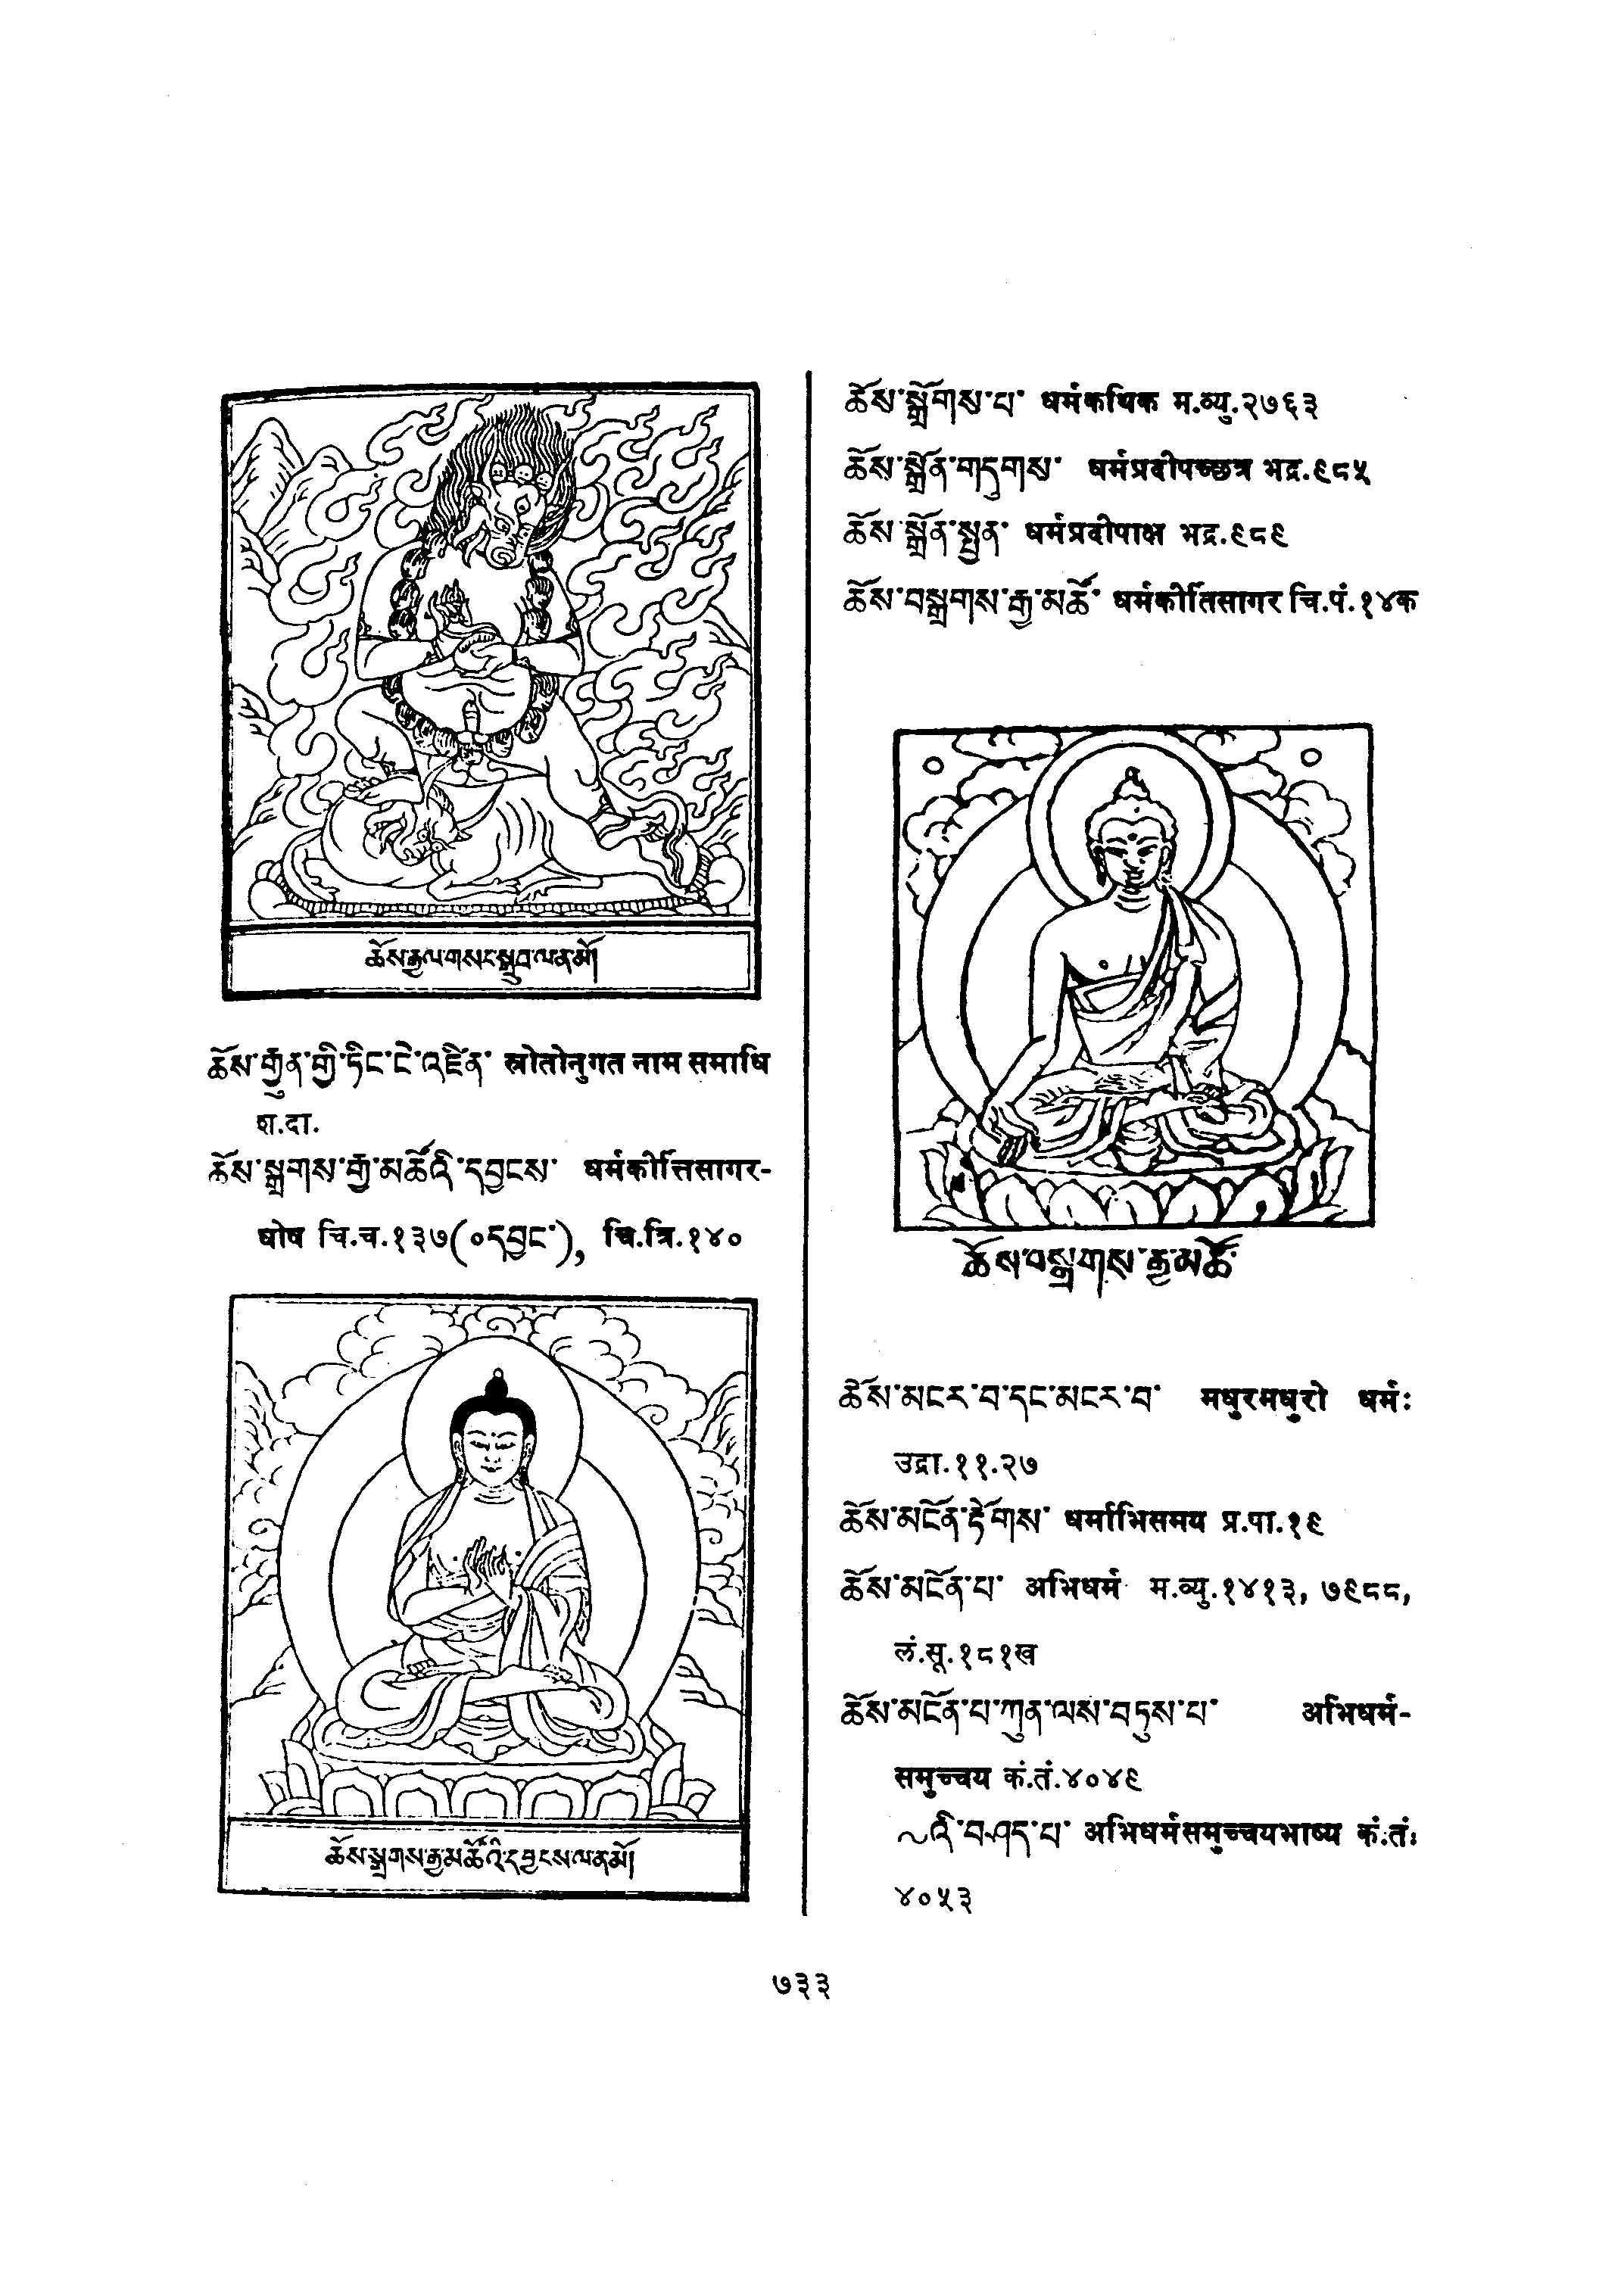 ཆོས་རྒྱལ་གསང་སྒྲུབ་ལ་ན་མོ།
ཆོས་རྒྱུན་གྱི་ཏིང་ངེ་འཛིན་ स्रोतोनुगत नाम समाधि
श.दा.
ཆོས་སྒྲགས་རྒྱ་མཚོའི་དབྱངས་ धर्मकीर्त्तिसागर-
घोष चि.च.१३७(०དབྱང་), चि.त्रि.१४०
ཆོས་སྒྲགས་རྒྱ་མཚོའི་དབྱངས་ལ་ན་མོ།
ཆོས་སྒྲོགས་པ་ धर्मकथिक म.व्यु.२७६३
ཆོས་སྒྲོན་གདུགས་ धर्मप्रदीपच्छत्र भद्र.९८५
ཆོས་སྒྲོན་སྤྱན་ धर्मप्रदीपाक्ष भद्र.९८९
ཆོས་བསྒྲགས་རྒྱ་མཚོ་ धर्मकीर्तिसागर चि.पं.१४क
ཆོས་བསྒྲགས་རྒྱ་མཚོ་
ཆོས་མངར་བ་དང་མངར་བ་ मधुरमधुरो धर्मः
उद्रा.११.२७
ཆོས་མངོན་རྟོགས་ धर्माभिसमय प्र.पा.१९
ཆོས་མངོན་པ་ अभिधर्म म.व्यु.१४१३, ७९८८,
लं.सू.१८१ख
ཆོས་མངོན་པ་ཀུན་ལས་བཏུས་པ་ अभिधर्म-
समुच्चय कं.तं.४०४९
~འི་བཤད་པ་ अभिधर्मसमुच्चयभाष्य कं.तं.
४०५३
७३३